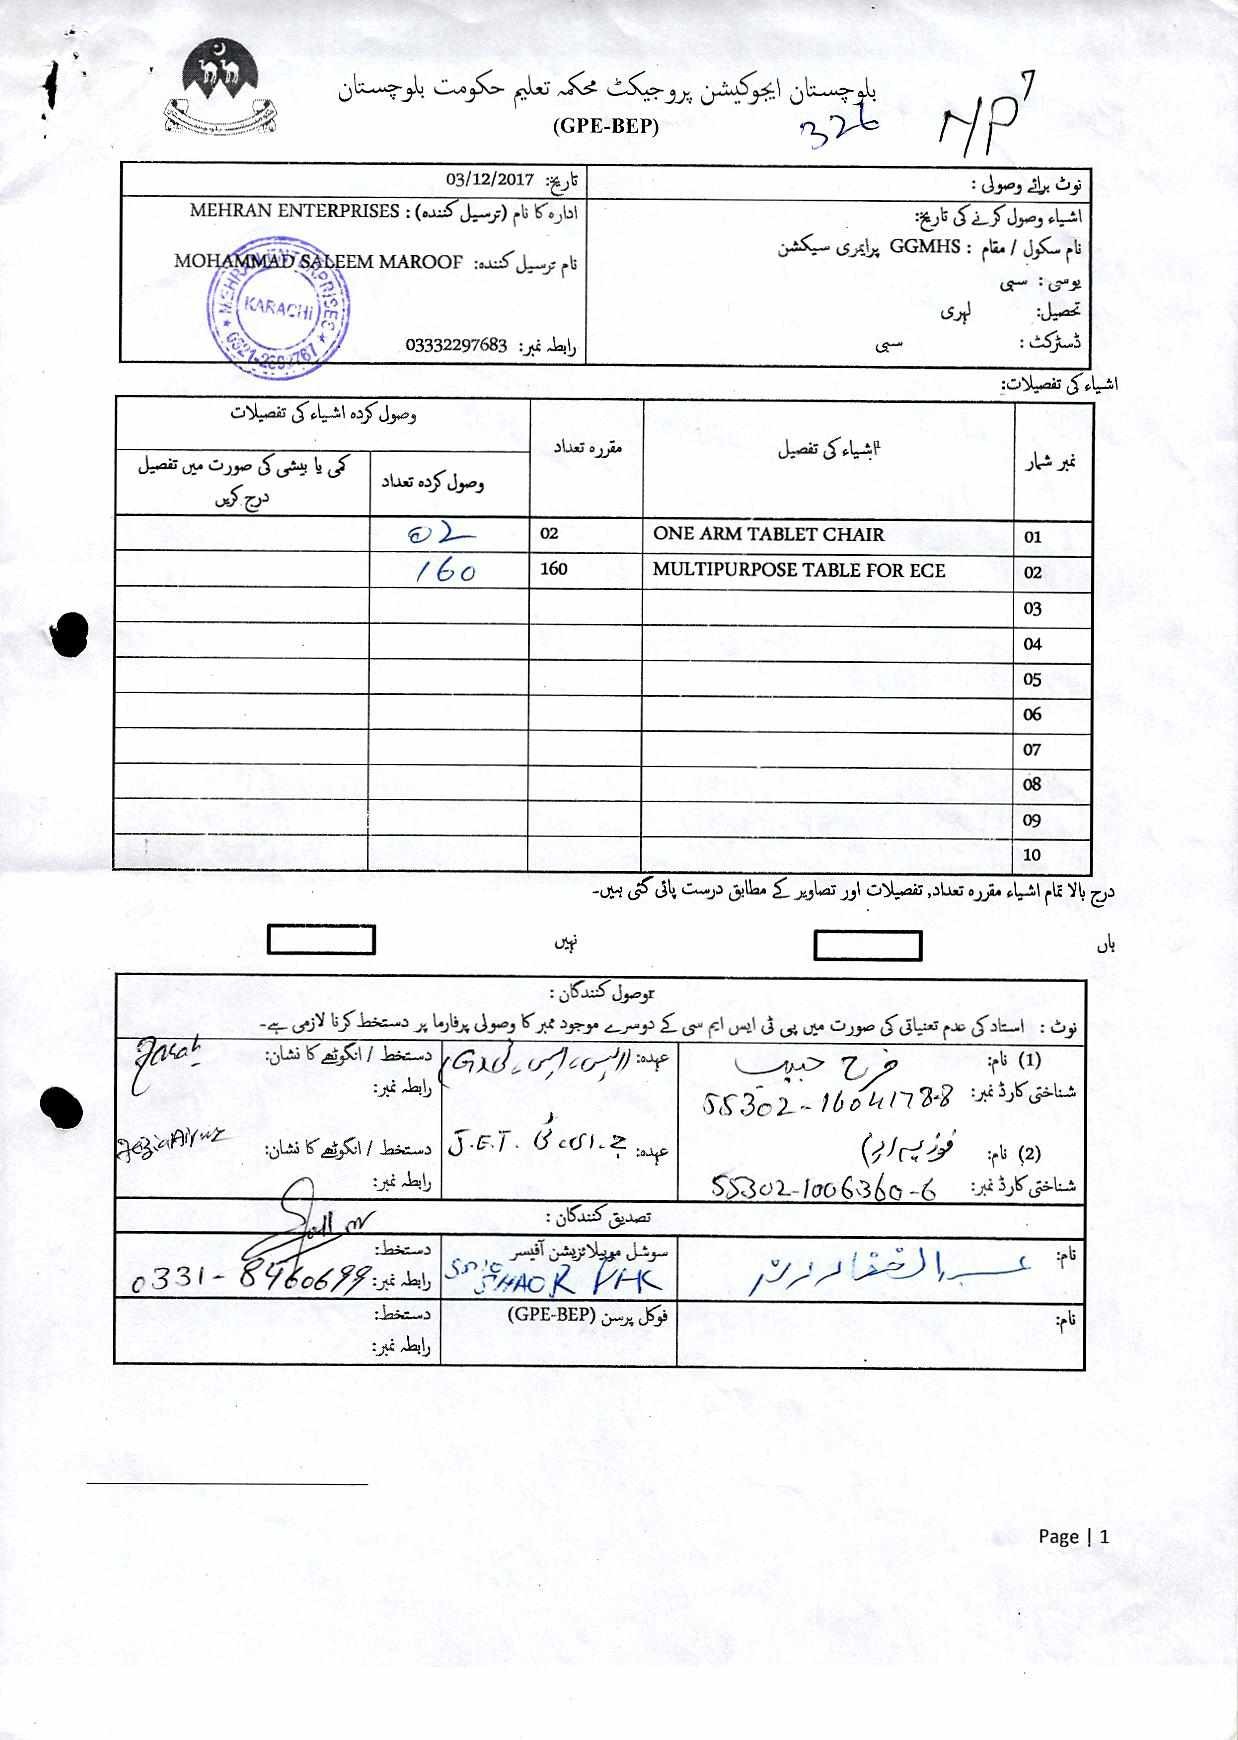 بلوچستان ایجوکیشن پروجیکٹ محکمہ تعلیم حکومت بلوچستان
(GPE-BEP)
326
NP 7
نوٹ برائے وصولی :
تاریخ: 03/12/2017
اشیاء وصول کرنے کی تاریخ:
نام سکول / مقام : GGMHS پرایمری سیکشن
یوسی : سبی
تحصیل: لہری
ڈسٹرکٹ : سبی
ادارہ کا نام (ترسیل کنندہ) : MEHRAN ENTERPRISES
نام ترسیل کنندہ: MOHAMMAD SALEEM MAROOF
رابطہ نمبر: 03332297683
MEHRAN ENTERPRISES
KARACHI
اشیاء کی تفصیلات:
نمبر شمار
اشیاء کی تفصیل
مقررہ تعداد
وصول کردہ اشیاء کی تفصیلات
وصول کردہ تعداد
کمی یا بیشی کی صورت میں تفصیل درج کریں
01 ONE ARM TABLET CHAIR 02 02
02 MULTIPURPOSE TABLE FOR ECE 160 160
03
04
05
06
07
08
09
10
درج بالا تمام اشیاء مقررہ تعداد, تفصیلات اور تصاویر کے مطابق درست پائی گئی ہیں۔
ہاں
نہیں
وصول کنندگان :
نوٹ : استاد کی عدم تعنیاتی کی صورت میں پی ٹی ایس ایم سی کے دوسرے موجود ممبر کا وصولی پرفارما پر دستخط کرنا لازمی ہے۔
(1) نام: فرح حبیب
شناختی کارڈ نمبر: 55302-1604178-8
عہدہ:
دستخط / انگوٹھے کا نشان: Farah
رابطہ نمبر:
(2) نام: فوزیہ
شناختی کارڈ نمبر: 55302-1006360-6
عہدہ: J.E.T. جے ای ٹی
دستخط / انگوٹھے کا نشان:
رابطہ نمبر:
تصدیق کنندگان :
نام:
سوشل موبیلائزیشن آفیسر
دستخط:
رابطہ نمبر: 0331-8460699
نام:
فوکل پرسن (GPE-BEP)
دستخط:
رابطہ نمبر:
Page | 1